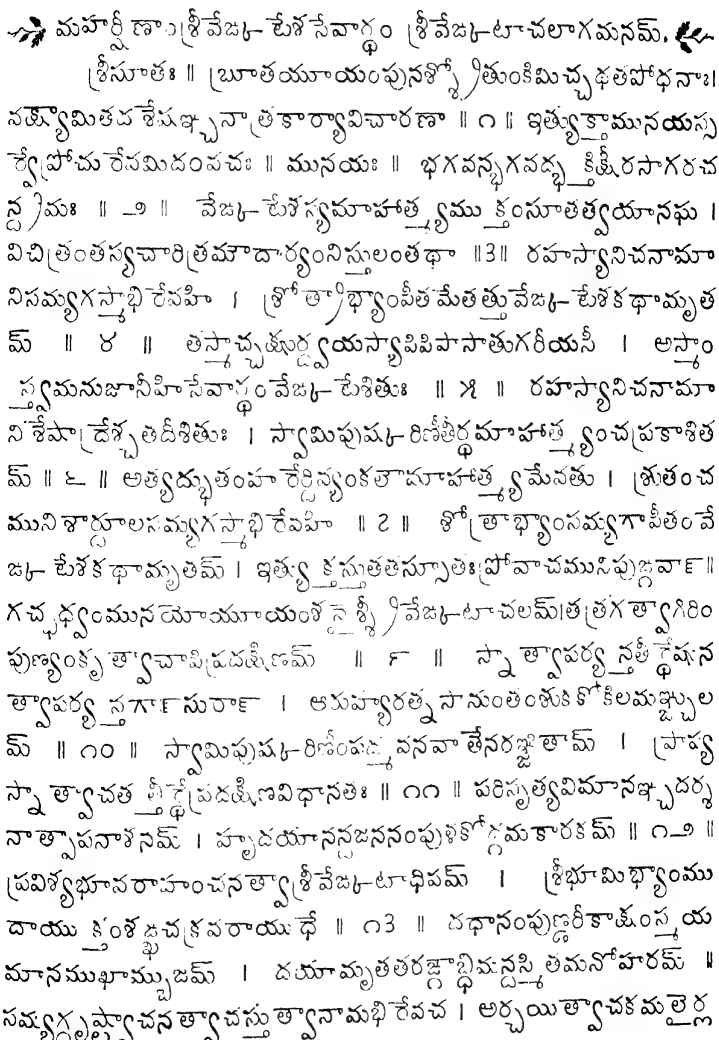 మహర్షీణాం శ్రీవేఙ్కటేశసేవార్థం శ్రీవేఙ్కటాచలాగమనమ్.
శ్రీసూతః ॥ బ్రూతయూయంపునశ్శ్రోతుంకిమిచ్ఛథతపోధనాః।
వక్ష్యామితదశేషఞ్చనాత్రకార్యావిచారణా ॥ ౧ ॥ ఇత్యుక్తామునయస్స
ర్వేప్రోచురేవమిదంవచః ॥ మునయః ॥ భగవన్భగవద్భక్తిక్షీరసాగరచ
న్ద్రిమః ॥ ౨ ॥ వేఙ్కటేశస్యమాహాత్మ్యముక్తంసూతత్వయానఘ ।
విచిత్రంతస్యచారిత్రమౌదార్యంనిస్తులంతథా ॥౩॥ రహస్యానిచనామా
నిసమ్యగస్మాభిరేవహి । శ్రోత్రాభ్యాంపీతమేతత్తువేఙ్కటేశకథామృత
మ్ ॥ ౪ ॥ తస్మాచ్చక్షుర్ద్వయస్యాపిపిపాసాతుగరీయసీ । అస్మాం
స్త్వమనుజానీహిసేవార్థంవేఙ్కటేశితుః ॥ ౫ ॥ రహస్యానిచనామా
నిశేషాద్రేశ్చతదీశితుః । స్వామిపుష్కరిణీతీర్థమాహాత్మ్యంచప్రకాశిత
మ్ ॥ ౬ ॥ అత్యద్భుతంహరేర్దివ్యంకలౌమాహాత్మ్యమేవతు । శ్రుతంచ
మునిశార్దూలసమ్యగస్మాభిరేవహి ॥ ౭ ॥ శ్రోత్రాభ్యాంసమ్యగాపీతంవే
ఙ్కటేశకథామృతమ్ । ఇత్యుక్తస్తుతతస్సూతఃప్రోవాచమునిపుఙ్గవాన్॥
గచ్ఛధ్వంమునయోయూయంశనైశ్శ్రీవేఙ్కటాచలమ్।తత్రగత్వాగిరిం
పుణ్యంకృత్వాచాపిప్రదక్షిణమ్ ॥ ౯ ॥ స్నాత్వాపర్యన్తతీర్థేషున
త్వాపర్యన్తగాన్సురాన్ । ఆరుహ్యారత్నసానుంతంశుకకోకిలమఞ్జుల
మ్ ॥ ౧౦ ॥ స్వామిపుష్కరిణీంపద్మవనవాతేనరఞ్జితామ్ । ప్రాప్య
స్నాత్వాచతత్తీర్థేప్రదక్షిణవిధానతః ॥ ౧౧ ॥ పరిసృత్యవిమానఞ్చదర్శ
నాత్పాపనాశనమ్ । హృదయానన్దజననంపుళకోద్గమకారకమ్ ॥ ౧౨ ॥
ప్రవిశ్యభూవరాహంచనత్వాశ్రీవేఙ్కటాధిపమ్ । శ్రీభూమిభ్యాంము
దాయుక్తంశఙ్ఖచక్రవరాయుధే ॥ ౧౩ ॥ దధానంపుణ్డరీకాక్షంస్మయ
మానముఖామ్బుజమ్ । దయామృతతరఙ్గాబ్ధిమన్దస్మితమనోహరమ్ ॥
సమ్యగ్దృష్ట్వాచనత్వాచస్తుత్వానామభిరేవచ । అర్చయిత్వాచకమలైర్ల